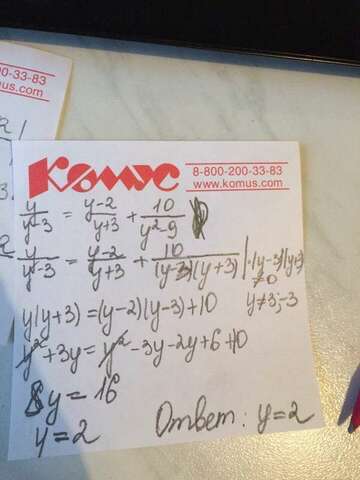 0-33-83
omus.com
Комус
8-800-200-33-83
www.komus.com
y/y-3 = y-2/y+3 + 10/y²-9
2
y/y-3 = y-2/y+3 + 10/(y-3)(y+3) | ·(y-3)(y+3)
≠0
y(y+3) = (y-2)(y-3)+10
y≠3;-3
y²+3y = y²-3y-2y+6+10
8y = 16
y = 2
Ответ: y=2